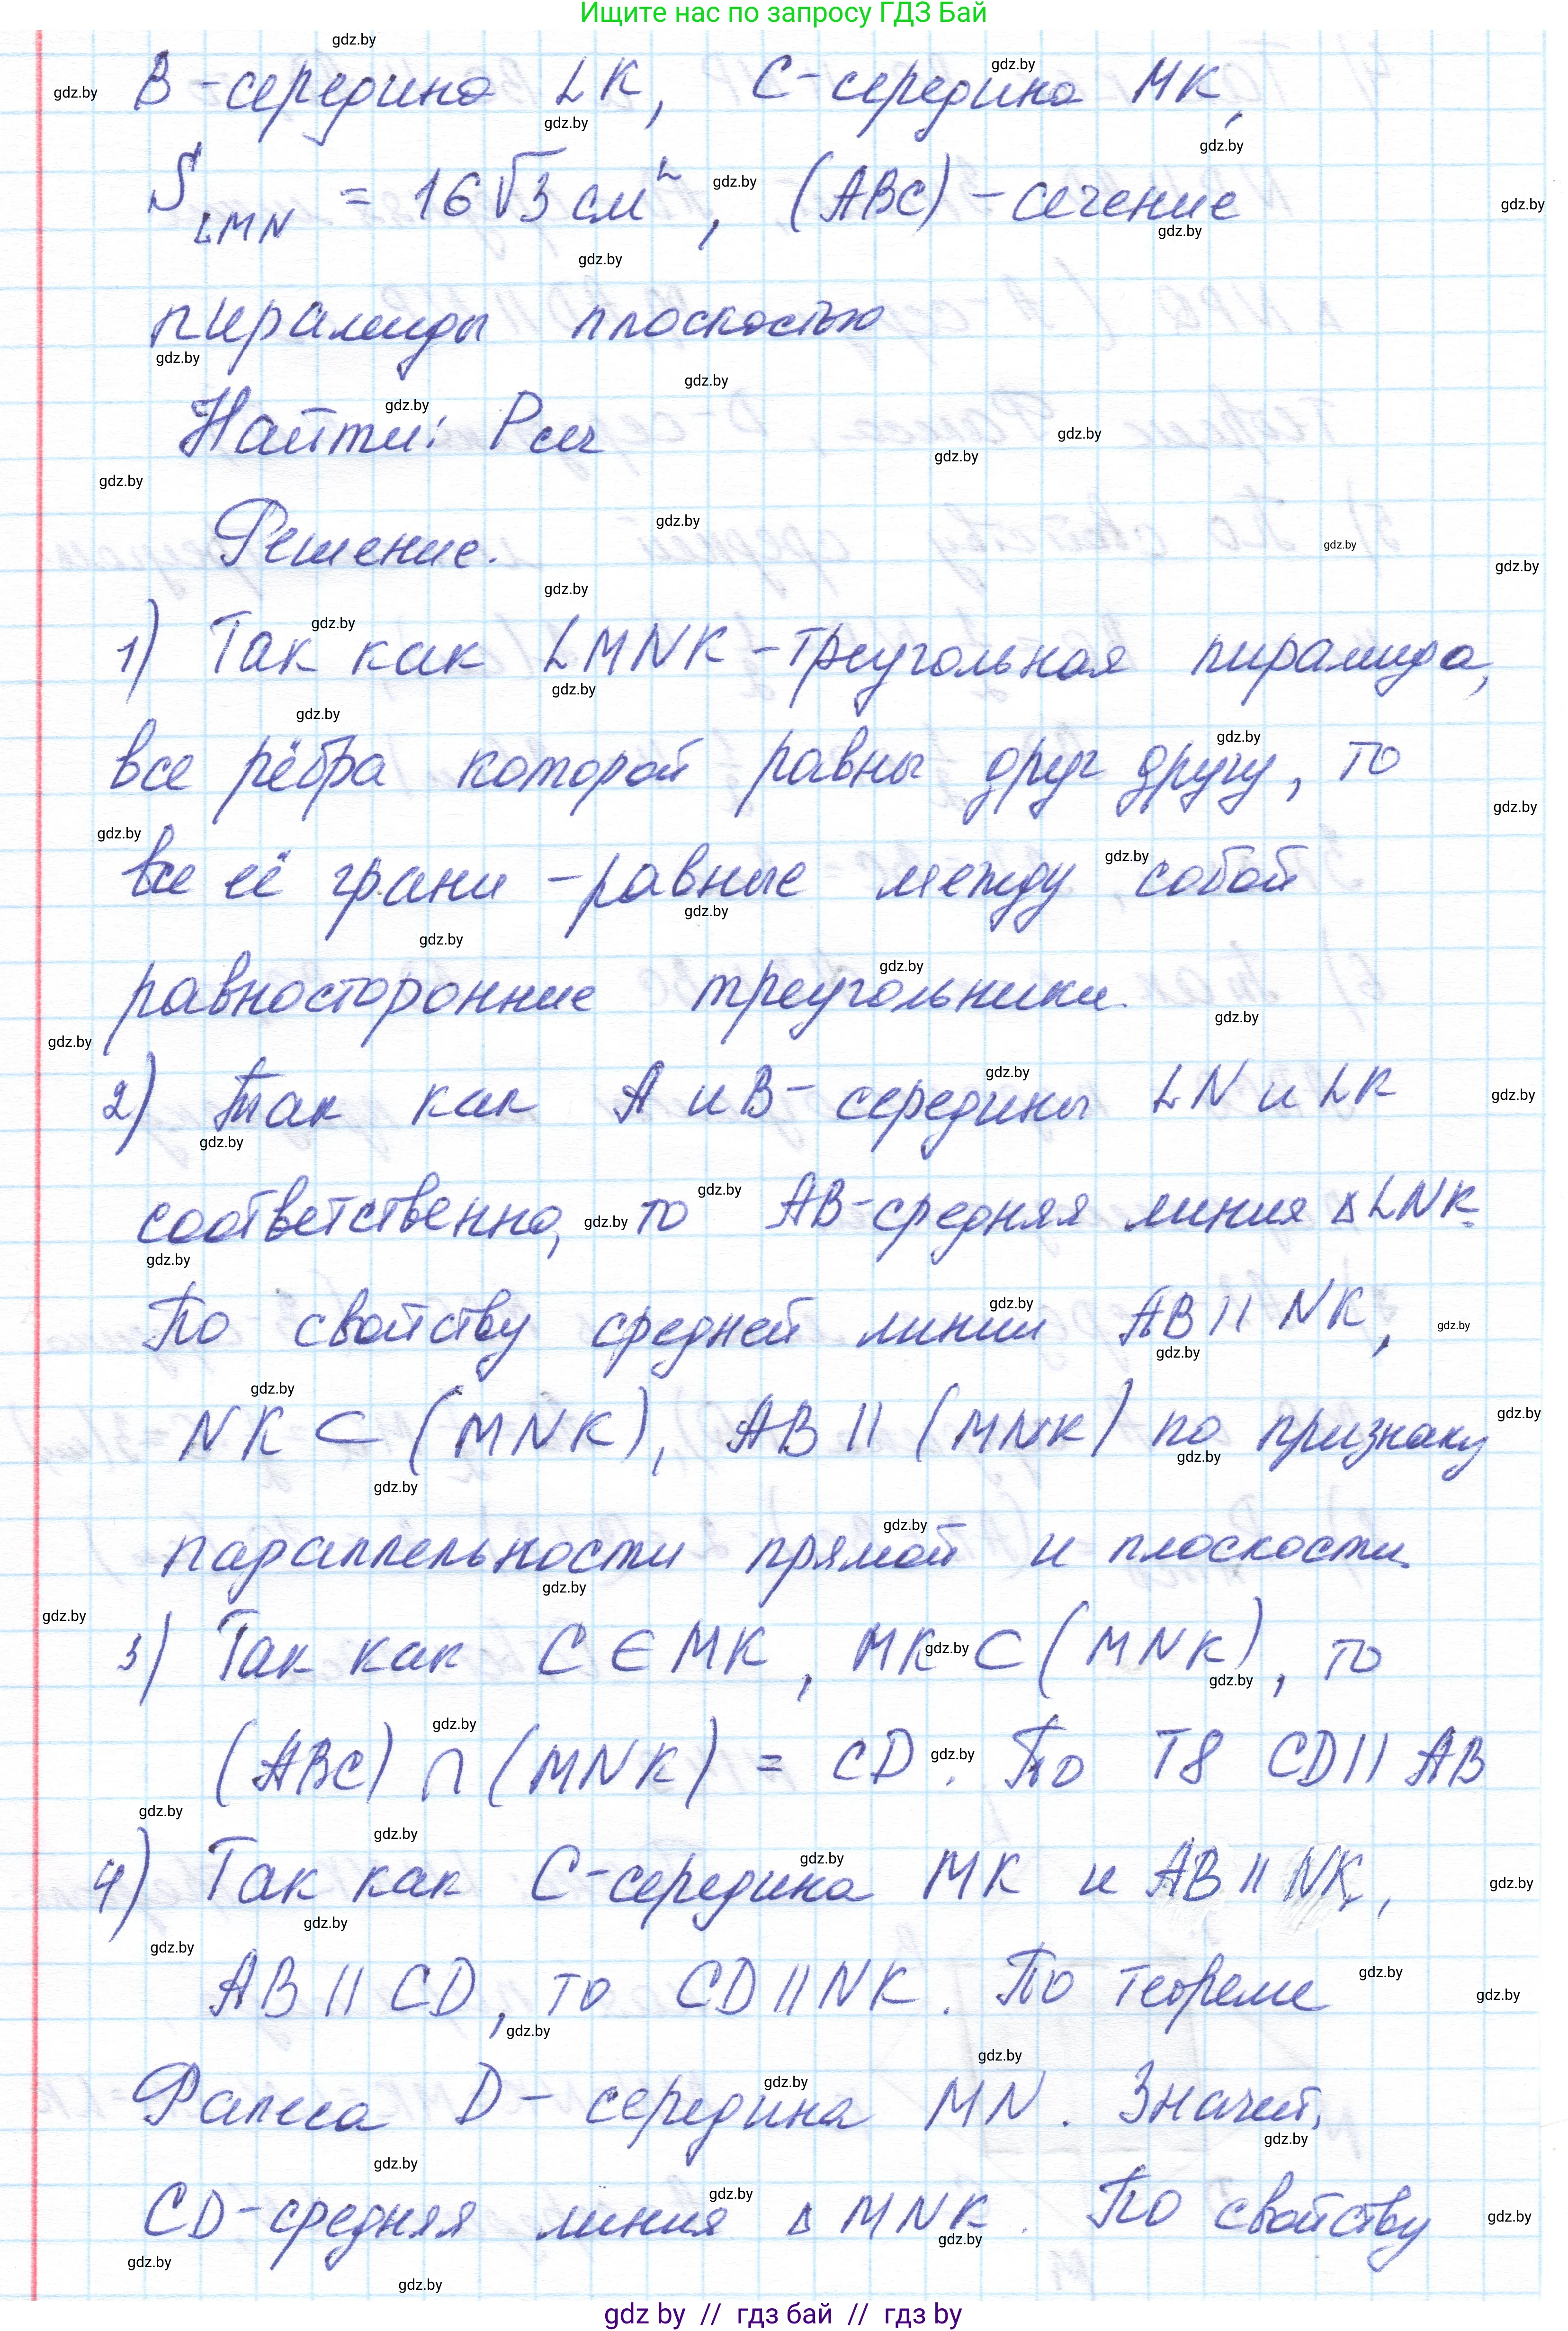 Ищите нас по запросу ГДЗ Бай
B - середина LK, C - середина MK,
S LMN = 16√3 см², (ABC) - сечение
пирамиды плоскостью
Найти: Pсеч
Решение.
1) Так как LMNK - треугольная пирамида,
все рёбра которой равны друг другу, то
все её грани - равные между собой
равносторонние треугольники.
2) Так как A и B - середины LN и LK
соответственно, то AB - средняя линия △LNK.
По свойству средней линии AB || NK,
NK ⊂ (MNK), AB || (MNK) по признаку
параллельности прямой и плоскости.
3) Так как C ∈ MK, MK ⊂ (MNK), то
(ABC) ∩ (MNK) = CD. По Т8 CD || AB
4) Так как C - середина MK и AB || NK,
AB || CD, то CD || NK. По теореме
Фалеса D - середина MN. Значит,
CD - средняя линия △MNK. По свойству
gdz by // гдз бай // гдз by